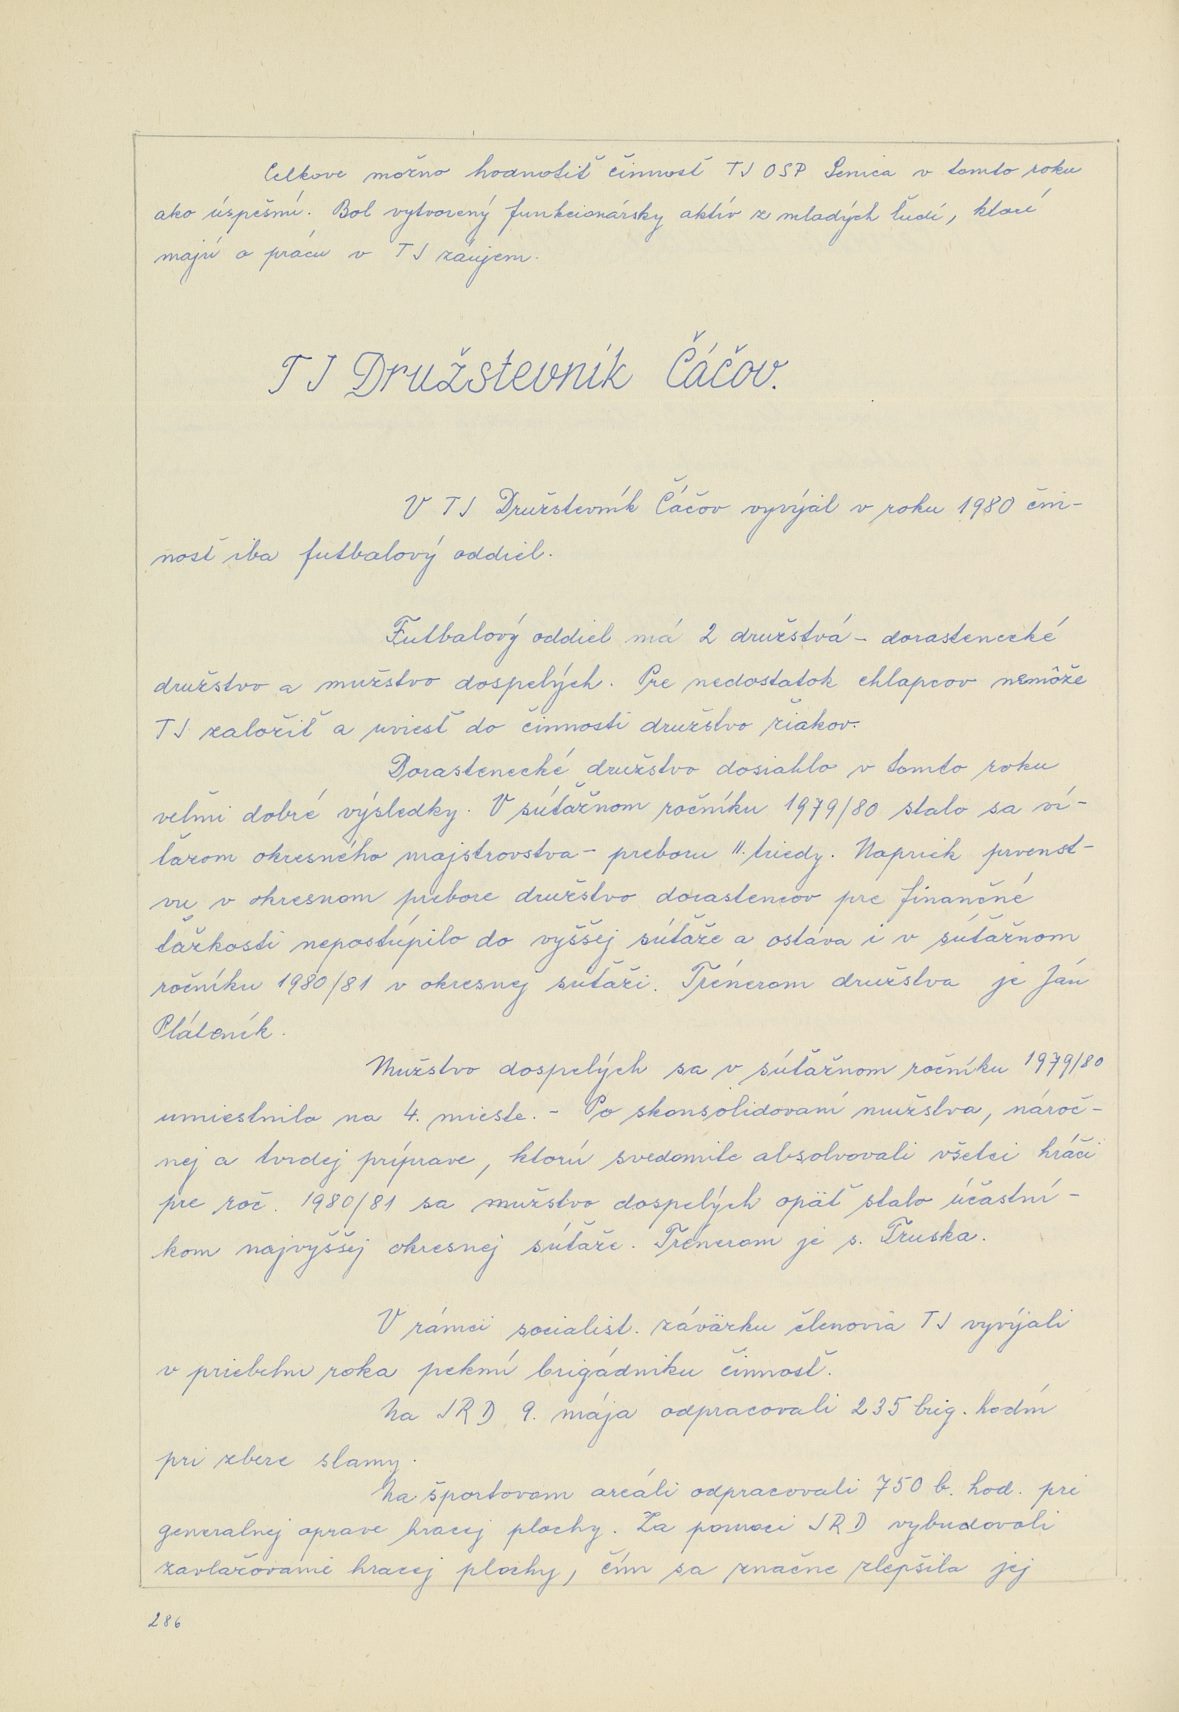 Celkove možno hodnotiť činnosť TJ OSP Senica v tomto roku
ako úspešnú. Bol vytvorený funkcionársky aktív z mladých ľudí, ktorí
majú o prácu v TJ záujem.
TJ Družstevník Čáčov.
V TJ Družstevník Čáčov vyvýjal v roku 1980 čin-
nosť iba futbalový oddiel.
Futbalový oddiel má 2 družstvá - dorastenecké
družstvo a mužstvo dospelých. Pre nedostatok chlapcov nemôže
TJ založiť a uviesť do činnosti družstvo žiakov.
Dorastenecké družstvo dosiahlo v tomto roku
veľmi dobré výsledky. V súťažnom ročníku 1979/80 stalo sa ví-
ťazom okresného majstrovstva - preboru II. triedy. Napriek prvenst-
vu v okresnom prebore družstvo dorastencov pre finančné
ťažkosti nepostúpilo do vyššej súťaže a ostáva i v súťažnom
ročníku 1980/81 v okresnej súťaži. Trénerom družstva je Ján
Pláteník.
Mužstvo dospelých sa v súťažnom ročníku 1979/80
umiestnilo na 4. mieste. - Po skonsolidovaní mužstva, nároč-
nej a tvrdej príprave, ktorú svedomite absolvovali všetci hráči
pre roč. 1980/81 sa mužstvo dospelých opäť stalo účastní-
kom najvyššej okresnej súťaže. Trénerom je s. Truska.
V rámci socialist. záväzku členovia TJ vyvýjali
v priebehu roka peknú brigádnicku činnosť.
Na JRD 9. mája odpracovali 235 brig. hodín
pri zbere slamy.
Na športovom areáli odpracovali 750 b. hod. pri
generalnej oprave hracej plochy. Za pomoci JRD vybudovali
zavlažovanie hracej plochy, čím sa značne zlepšila jej
286